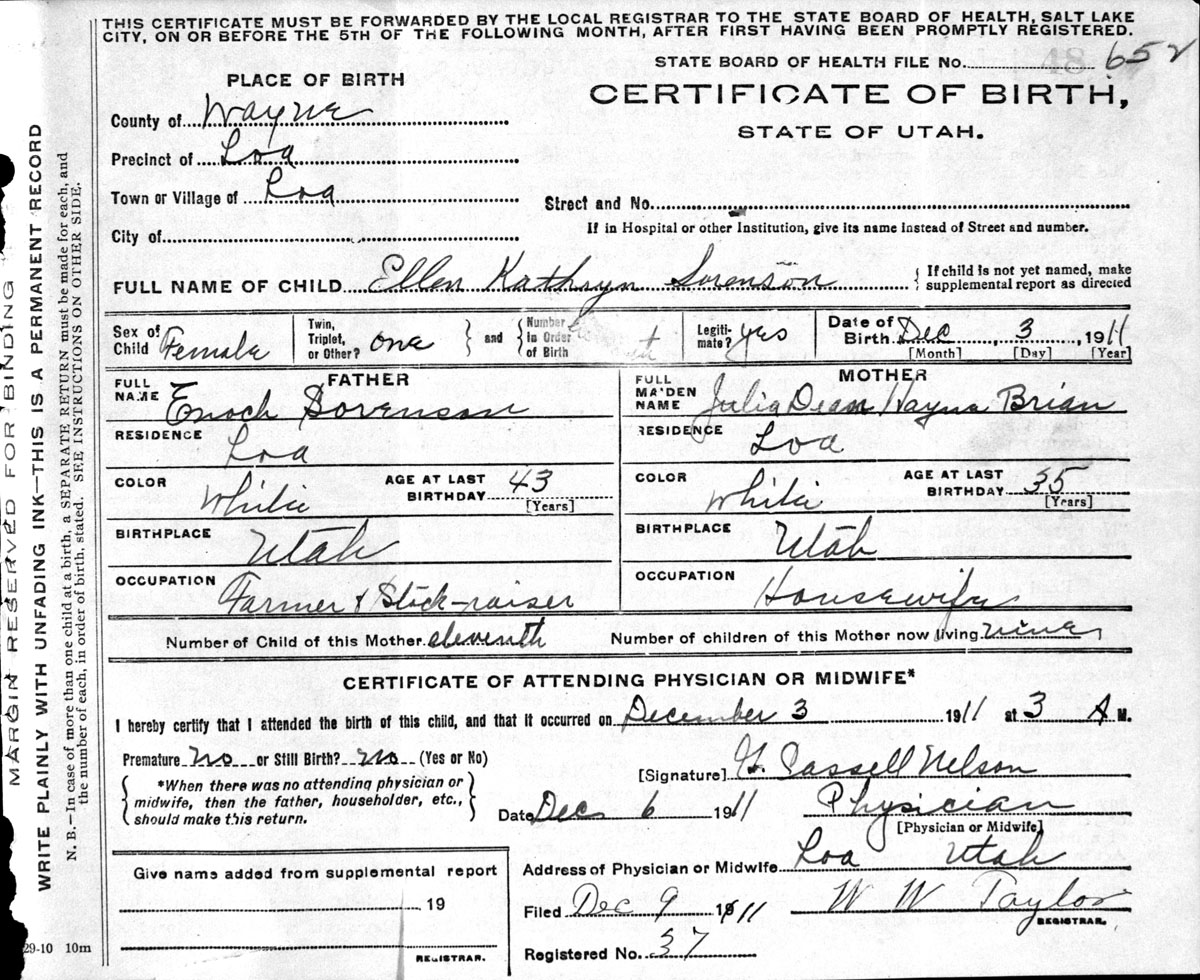 THIS CERTIFICATE MUST BE FORWARDED BY THE LOCAL REGISTRAR TO THE STATE BOARD OF HEALTH, SALT LAKE
CITY, ON OR BEFORE THE 5TH OF THE FOLLOWING MONTH, AFTER FIRST HAVING BEEN PROMPTLY REGISTERED.
STATE BOARD OF HEALTH FILE No. 652
PLACE OF BIRTH
CERTIFICATE OF BIRTH,
STATE OF UTAH.
County of Wayne
Precinct of Loa
Town or Village of Loa
Street and No.
City of
If in Hospital or other Institution, give its name instead of Street and number.
FULL NAME OF CHILD Ellen Kathryn Sorenson
If child is not yet named, make
supplemental report as directed
Sex of Child Female
Twin, Triplet, or Other? one
and
Number in Order of Birth
Legitimate? yes
Date of Birth Dec 3, 1911
[Month] [Day] [Year]
FATHER
FULL NAME Enoch Sorenson
RESIDENCE Loa
COLOR White
AGE AT LAST BIRTHDAY 43
[Years]
BIRTHPLACE Utah
OCCUPATION Farmer & Stock-raiser
MOTHER
FULL MAIDEN NAME Julia Dean Brian
RESIDENCE Loa
COLOR White
AGE AT LAST BIRTHDAY 35
[Years]
BIRTHPLACE Utah
OCCUPATION Housewife
Number of Child of this Mother eleventh
Number of children of this Mother now living nine
CERTIFICATE OF ATTENDING PHYSICIAN OR MIDWIFE*
I hereby certify that I attended the birth of this child, and that it occurred on December 3 1911 at 3 A M.
Premature No or Still Birth? no (Yes or No)
[Signature] Cassell Nelson
*When there was no attending physician or
midwife, then the father, householder, etc.,
should make this return.
Date Dec 6 1911
Physician
[Physician or Midwife]
Address of Physician or Midwife Loa Utah
Give name added from supplemental report
19
REGISTRAR.
Filed Dec 9 1911
W W Taylor
REGISTRAR.
Registered No. 37
29-10 10m
MARGIN RESERVED FOR BINDING
WRITE PLAINLY WITH UNFADING INK—THIS IS A PERMANENT RECORD
N. B.—In case of more than one child at a birth, a SEPARATE RETURN must be made for each, and
the number of each, in order of birth, stated. SEE INSTRUCTIONS ON OTHER SIDE.